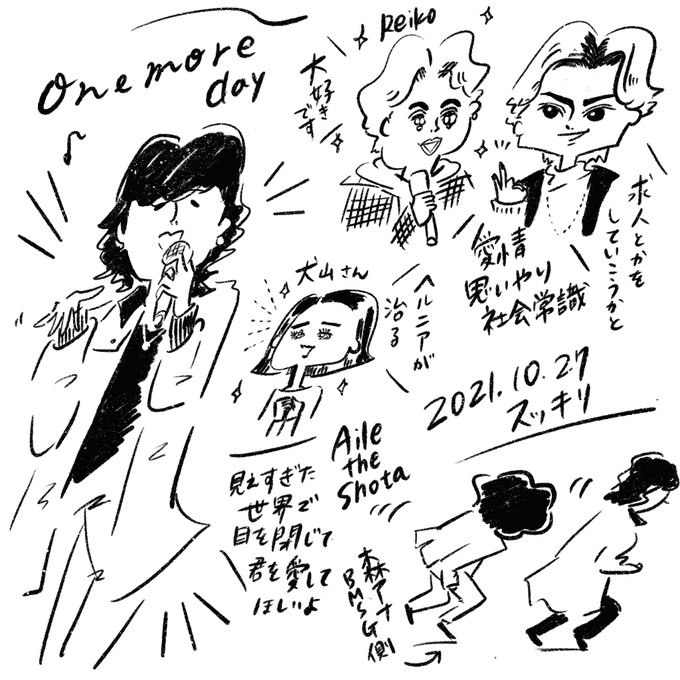 One more
day
Reiko
大好き
です
求人とかを
していこうかと
愛情
思いやり
社会常識
犬山さん
ヘルニアが
治る
2021.10.27
スッキリ
Aile
the
Shota
見えすぎた
世界で
目を閉じて
君を愛して
ほしいよ
森アナ
BMSG側